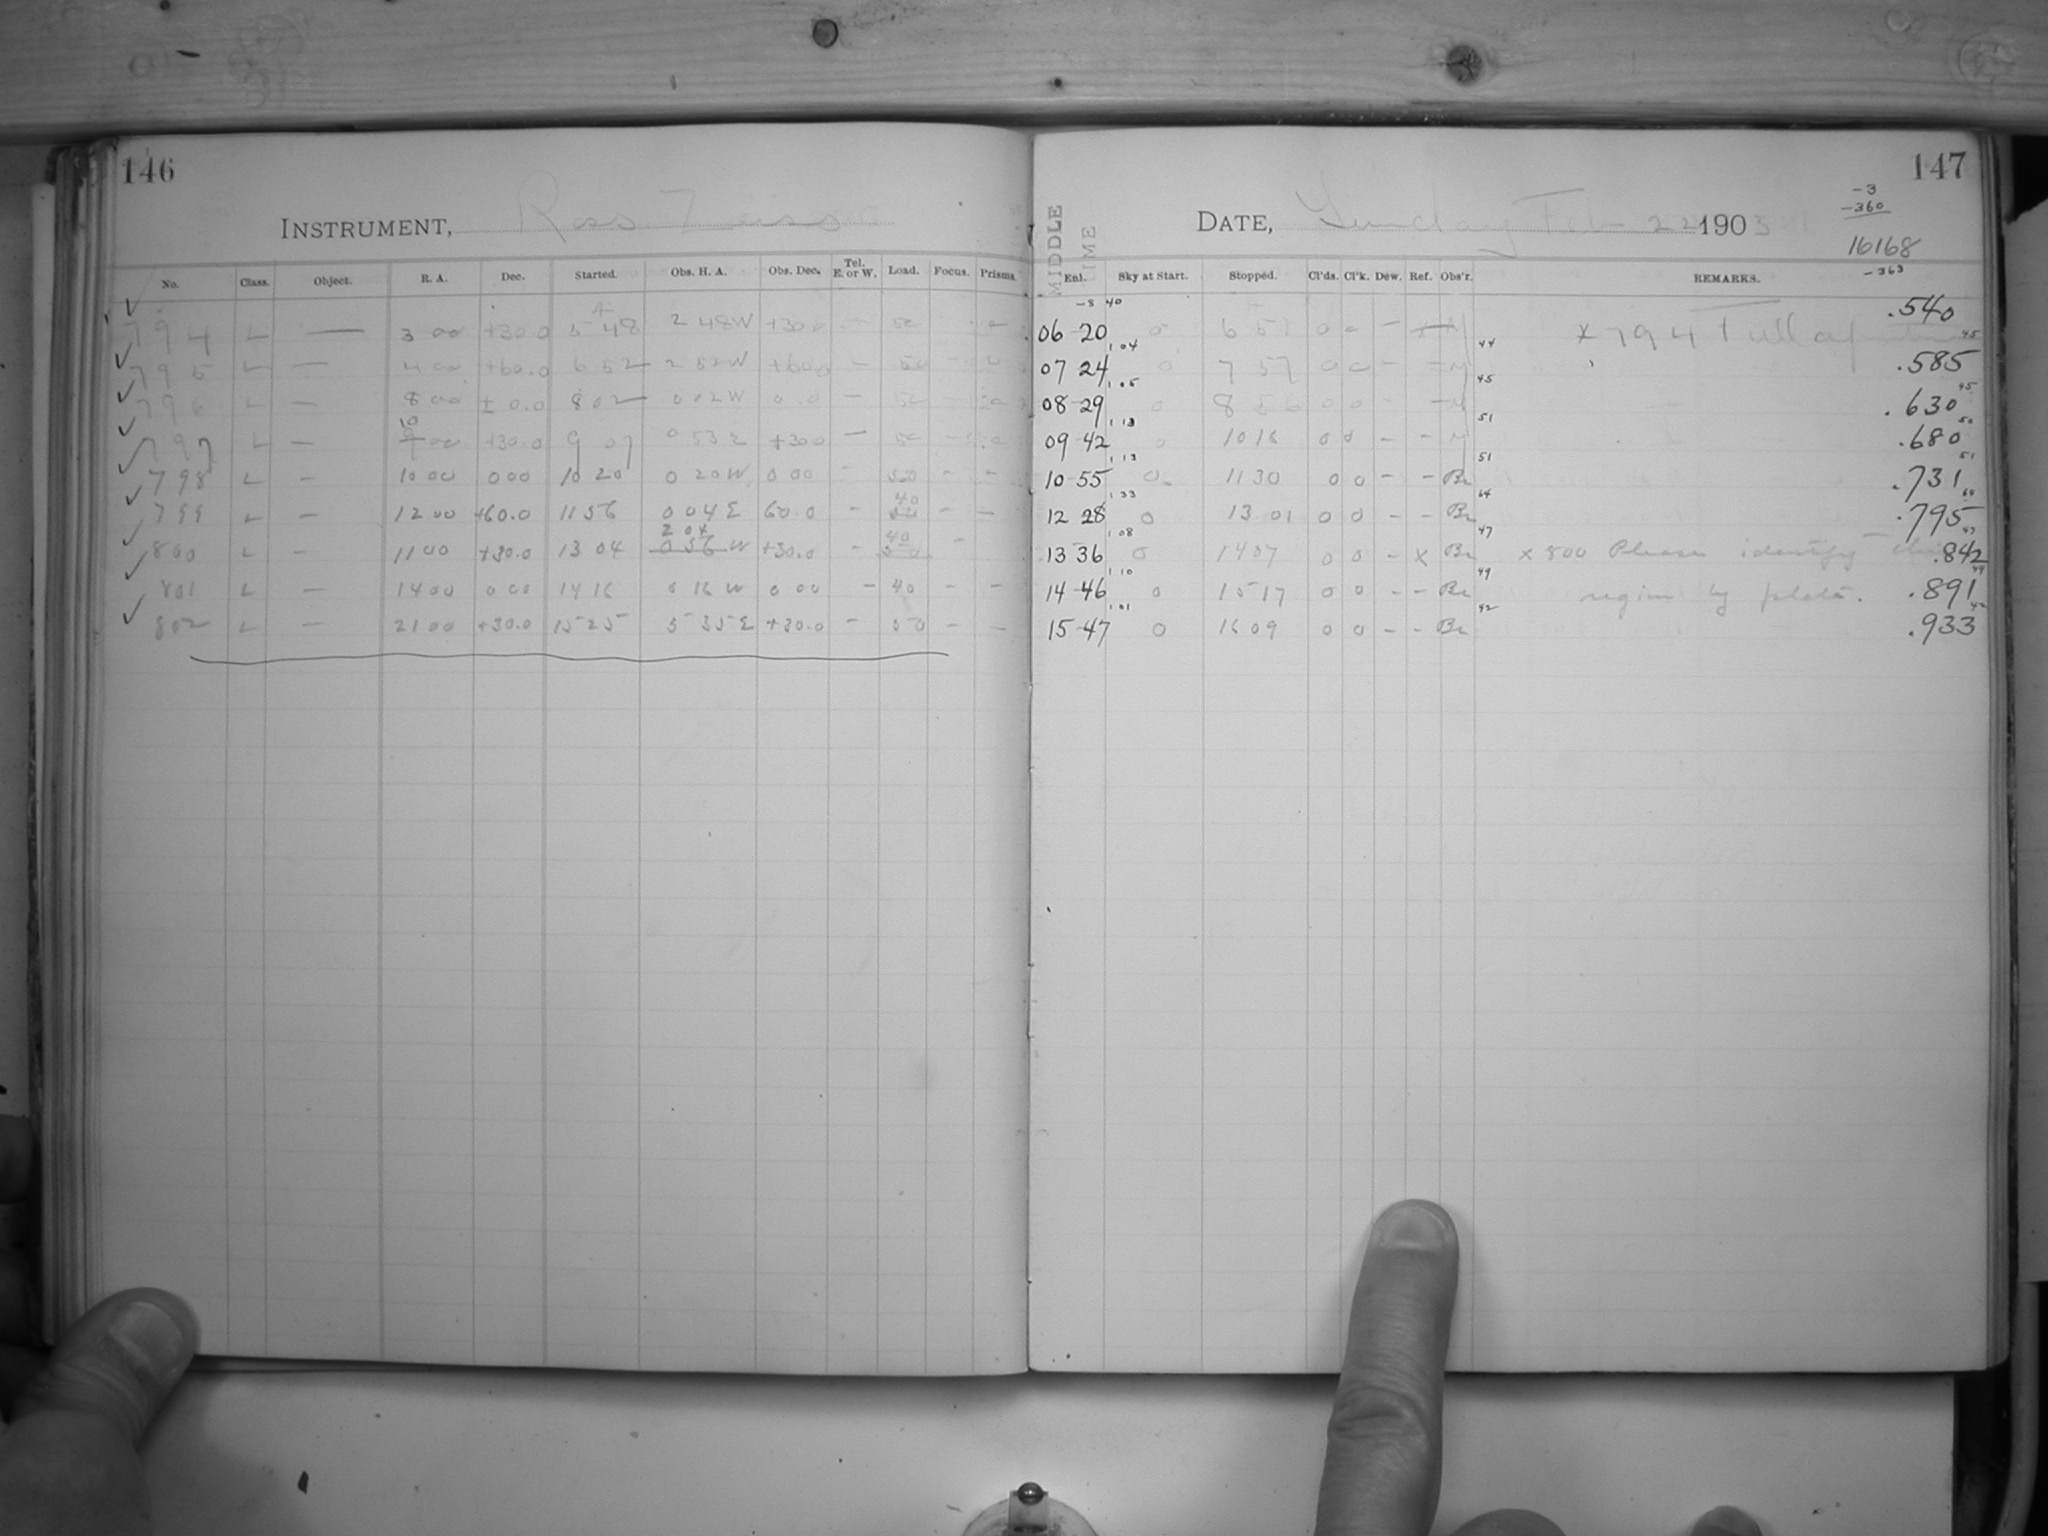 146
INSTRUMENT, Ross Zeiss
No. Class. Object. R. A. Dec. Started. Obs. H. A. Obs. Dec. Tel. E. or W. Load. Focus. Prisms.
794 L — 3 00 +30.0 5 48 2 48 W +30.0 — 50
795 L — 4 00 +60.0 6 52 2 52 W +60.0 — 50 —
796 L — 8 00 ± 0.0 8 02 0 02 W 0.0 — 50 —
10
797 L — 9 00 +30.0 9 07 0 53 E +30.0 — 50 —
798 L — 10 00 0 00 10 20 0 20 W 0 00 — 50 — —
40
799 L — 12 00 +60.0 11 56 0 04 E 60.0 — 50 — —
2 04 40
800 L — 11 00 +30.0 13 04 0 56 W +30.0 — 50 —
801 L — 14 00 0 00 14 16 0 16 W 0 00 — 40 — —
802 L — 21 00 +30.0 15 25 5 35 E +30.0 — 50 — —
147
-3
-360
DATE, Sunday Feb 22 1903
16168
-363
MIDDLE TIME
Enl. Sky at Start. Stopped. Cl'ds. Cl'k. Dew. Ref. Obs'r. REMARKS.
-8 40
06-20 0 6 51 0 0 — M x 794 Full .540
1 04 44 45
07 24 0 7 57 0 0 — — M .585
1 05 45 45
08-29 0 8 56 0 0 — M .630
1 13 51 50
09-42 0 10 16 0 0 — — M .680
1 13 51 51
10-55 0 11 30 0 0 — — Br .731
1 33 64 64
12 28 0 13 01 0 0 — — Br .795
1 08 47 47
13-36 0 14 07 0 0 — x Br x 800 Please identify this .842
1 10 49 49
14-46 0 15 17 0 0 — — Br region by plate. .891
1 01 42 42
15-47 0 16 09 0 0 — — Br .933